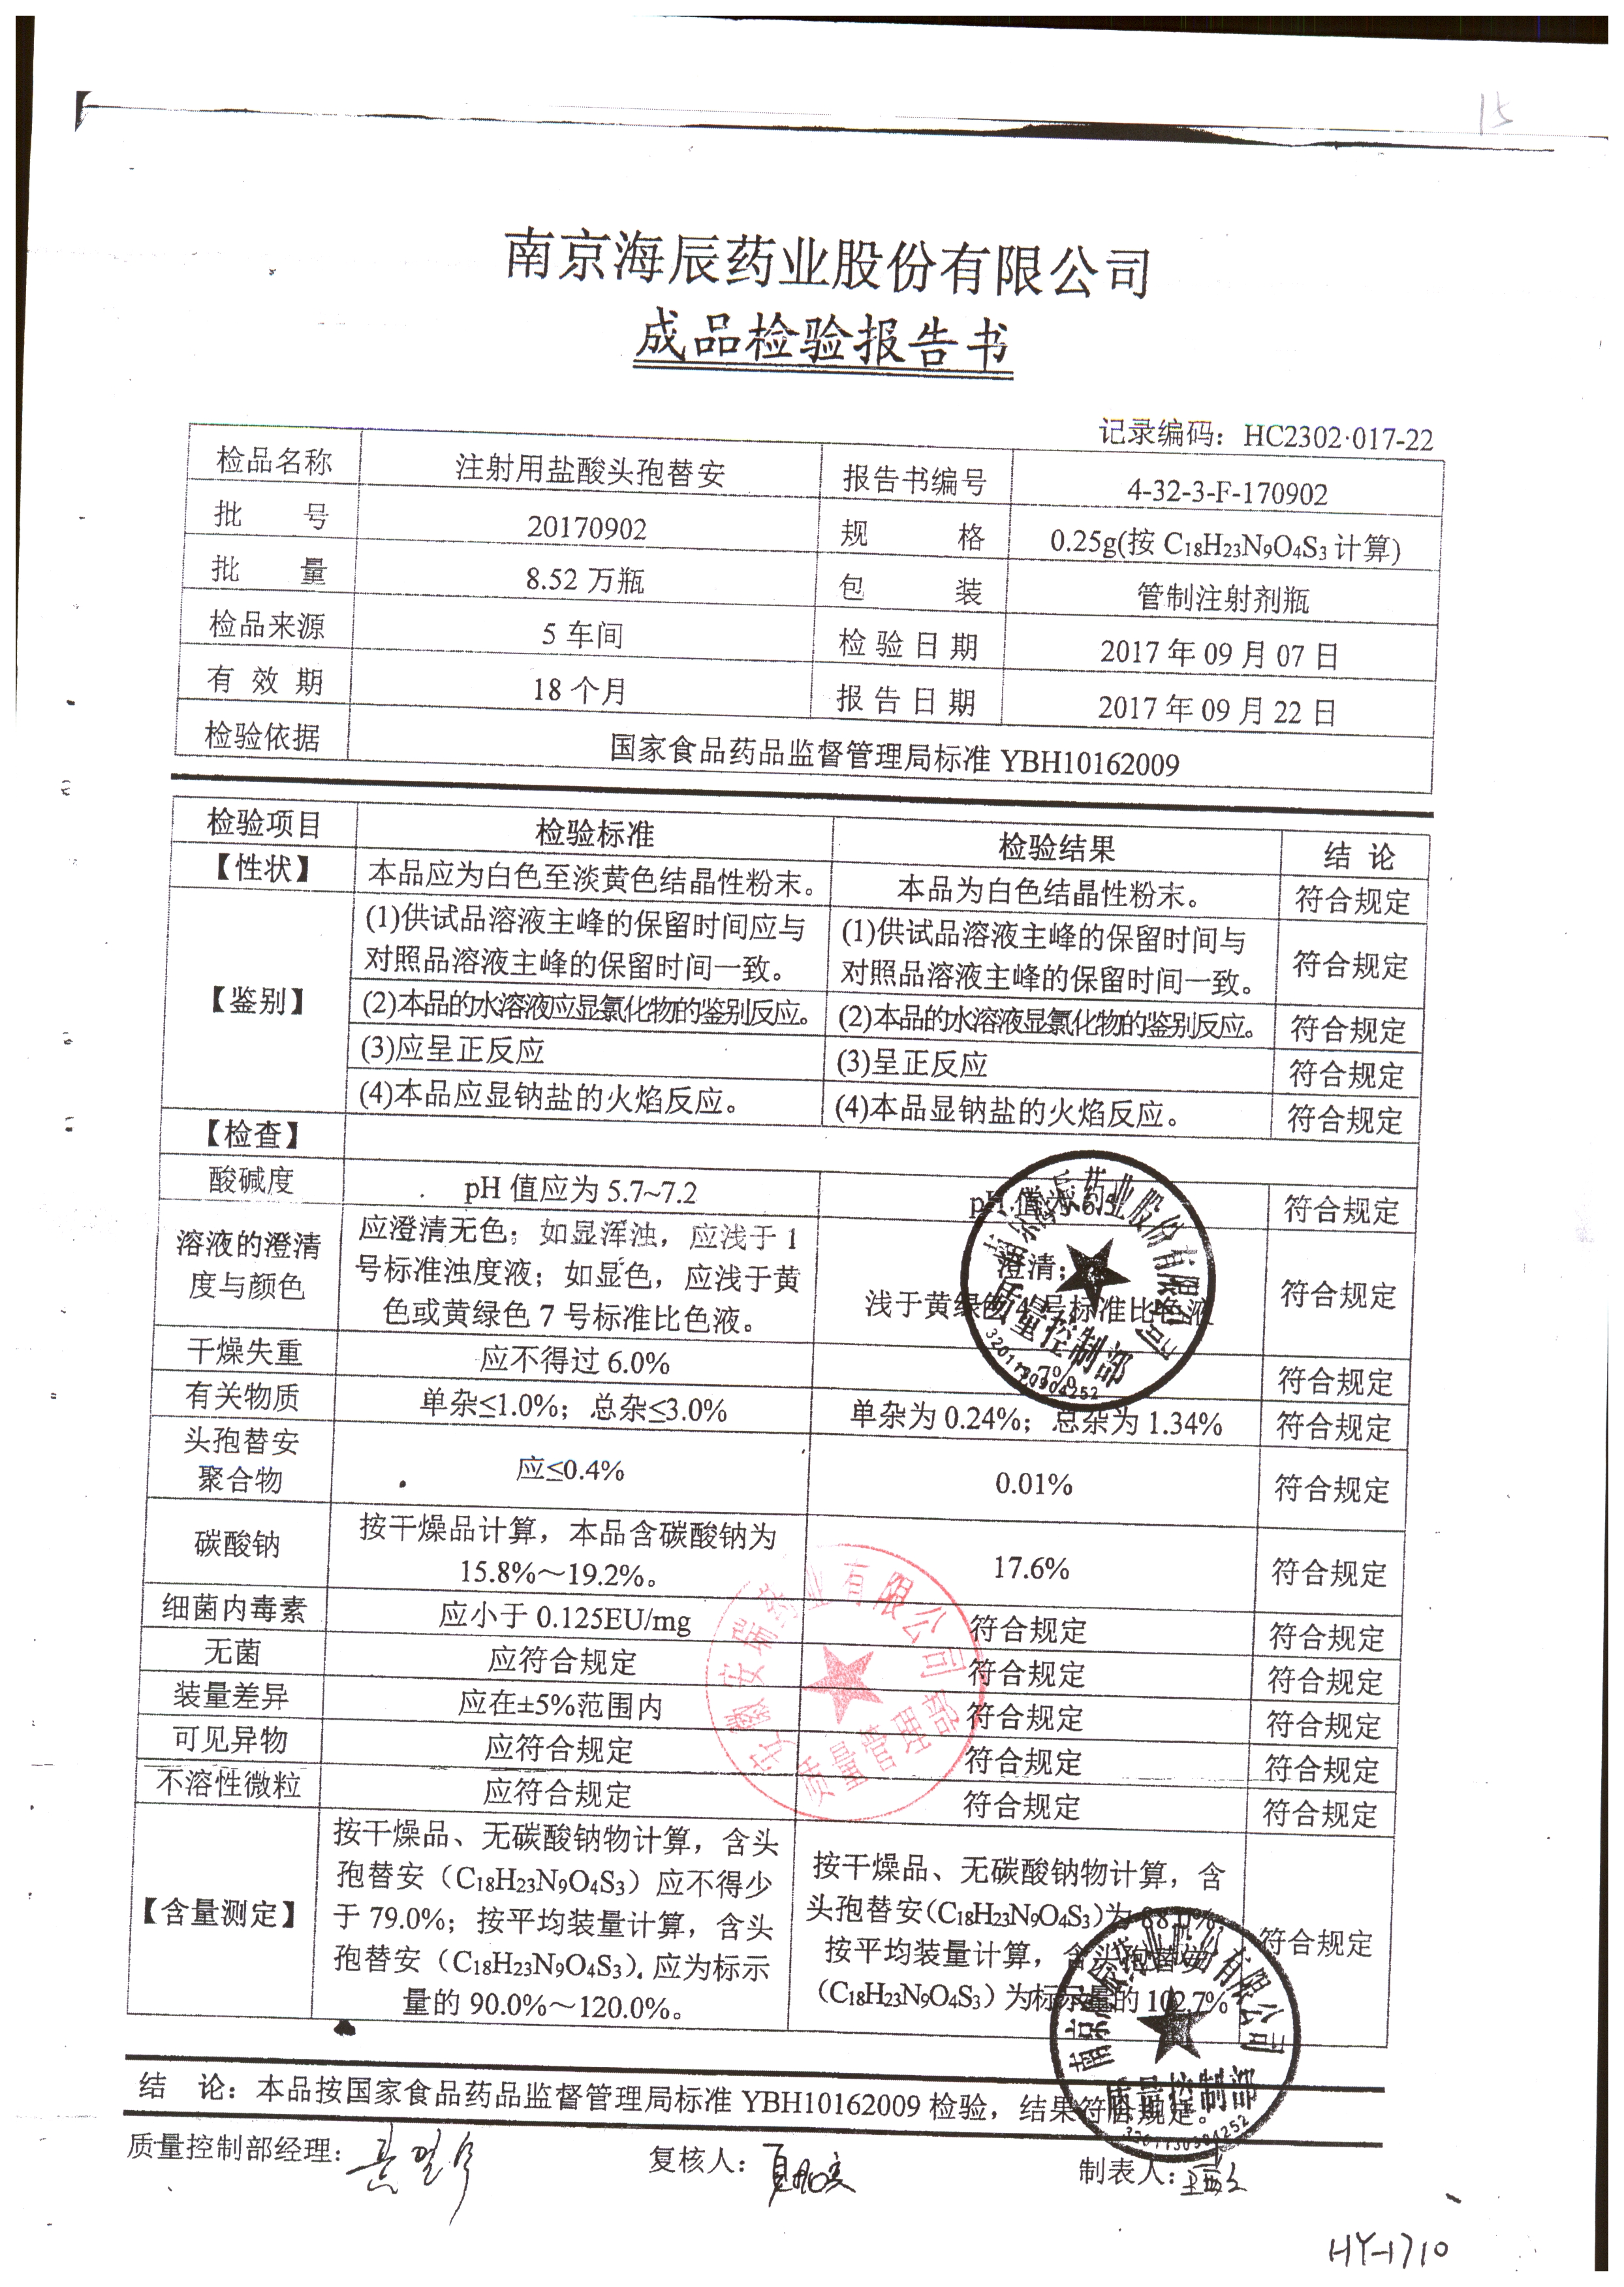 15
南京海辰药业股份有限公司
成品检验报告书
记录编码：HC2302·017-22
检品名称 注射用盐酸头孢替安 报告书编号 4-32-3-F-170902
批 号 20170902 规 格 0.25g(按 C₁₈H₂₃N₉O₄S₃ 计算)
批 量 8.52 万瓶 包 装 管制注射剂瓶
检品来源 5 车间 检 验 日 期 2017 年 09 月 07 日
有 效 期 18 个月 报 告 日 期 2017 年 09 月 22 日
检验依据 国家食品药品监督管理局标准 YBH10162009
检验项目 检验标准 检验结果 结 论
【性状】 本品应为白色至淡黄色结晶性粉末。 本品为白色结晶性粉末。 符合规定
【鉴别】
(1)供试品溶液主峰的保留时间应与
对照品溶液主峰的保留时间一致。
(1)供试品溶液主峰的保留时间与
对照品溶液主峰的保留时间一致。
符合规定
(2)本品的水溶液应显氯化物的鉴别反应。 (2)本品的水溶液显氯化物的鉴别反应。 符合规定
(3)应呈正反应 (3)呈正反应 符合规定
(4)本品应显钠盐的火焰反应。 (4)本品显钠盐的火焰反应。 符合规定
【检查】
酸碱度 pH 值应为 5.7~7.2 pH 值为 符合规定
溶液的澄清
度与颜色
应澄清无色；如显浑浊，应浅于 1
号标准浊度液；如显色，应浅于黄
色或黄绿色 7 号标准比色液。
澄清；
浅于黄绿色 号标准比色液
符合规定
干燥失重 应不得过 6.0% 符合规定
有关物质 单杂≤1.0%；总杂≤3.0% 单杂为 0.24%；总杂为 1.34% 符合规定
头孢替安
聚合物
应≤0.4% 0.01% 符合规定
碳酸钠
按干燥品计算，本品含碳酸钠为
15.8%～19.2%。
17.6% 符合规定
细菌内毒素 应小于 0.125EU/mg 符合规定 符合规定
无菌 应符合规定 符合规定 符合规定
装量差异 应在±5%范围内 符合规定 符合规定
可见异物 应符合规定 符合规定 符合规定
不溶性微粒 应符合规定 符合规定 符合规定
【含量测定】
按干燥品、无碳酸钠物计算，含头
孢替安（C₁₈H₂₃N₉O₄S₃）应不得少
于 79.0%；按平均装量计算，含头
孢替安（C₁₈H₂₃N₉O₄S₃）应为标示
量的 90.0%～120.0%。
按干燥品、无碳酸钠物计算，含
头孢替安(C₁₈H₂₃N₉O₄S₃)为
按平均装量计算，含头孢替安
（C₁₈H₂₃N₉O₄S₃）为标示量的 102.7%
符合规定
南京海辰药业股份有限公司
质量控制部
安徽安瑞药业有限公司
质量管理部
南京海辰药业股份有限公司
质量控制部
结 论：本品按国家食品药品监督管理局标准 YBH10162009 检验，结果符合规定。
质量控制部经理： 复核人： 制表人：
HY-1710